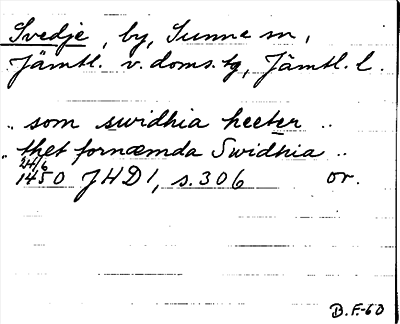 Svedje, by, Sunne sn,
Jämtl. v. doms. tg, Jämtl. l.
.. som swidhia heeter ..
.. thet fornæmda Swidhia ..
24/6
1450 JHD 1, s. 306 or.
B.F.-60